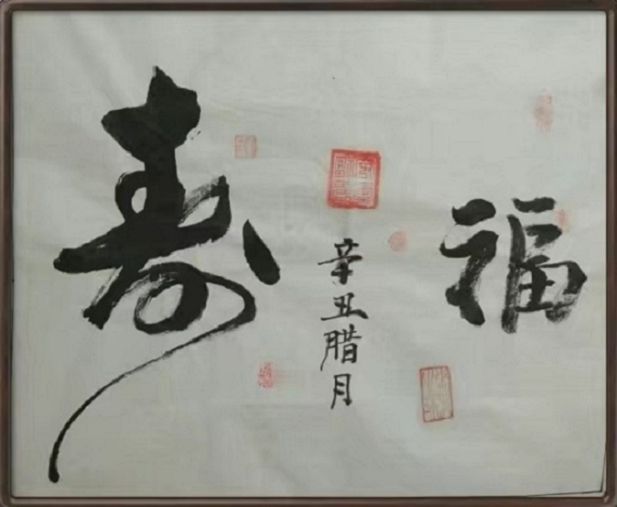 福
辛丑腊月
寿